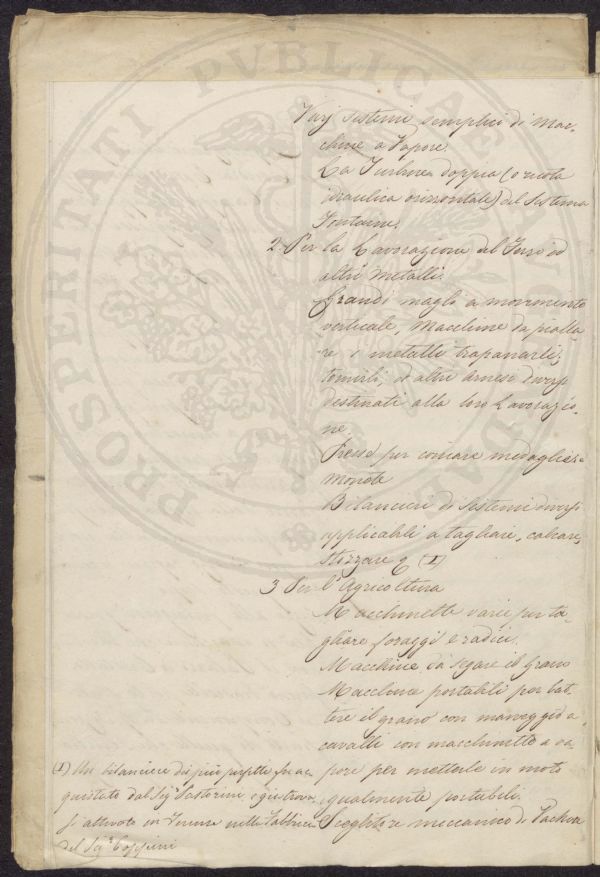 Varj sistemi semplici di Mac-
chine a Vapore.
La Turbine doppia (o ruota
idraulica orizzontale) del Sistema
Fontaine.
2 Per la Lavorazione del Ferro ed
altri Metalli.
Grandi magli a movimento
verticale, Macchine da pialla-
re i metalli trapanarli,
tornirli, ed altri arnesi diversi
destinati alla loro Lavorazio-
ne
Presse per coniare medaglie e
monete
Bilancieri di Sistemi diversi
applicabili a tagliare, calcare,
Stozzare (1)
3 Per l'Agricoltura
Macchinette varie per ta-
gliare foraggi e radici.
Macchine da segare il Grano
Macchine portabili per bat-
tere il grano con maneggio a
cavalli con macchinette a va
pore per metterle in moto
egualmente portabili
Sceglitore meccanico di Pachon
(1) Un bilanciere dei più perfetti fu ac-
quistato dal Sigr Pastorini, e già trova
si attivato in Firenze nella Fabbrica
del Sigr Coppini
PROSPERITATI PVBLICAE